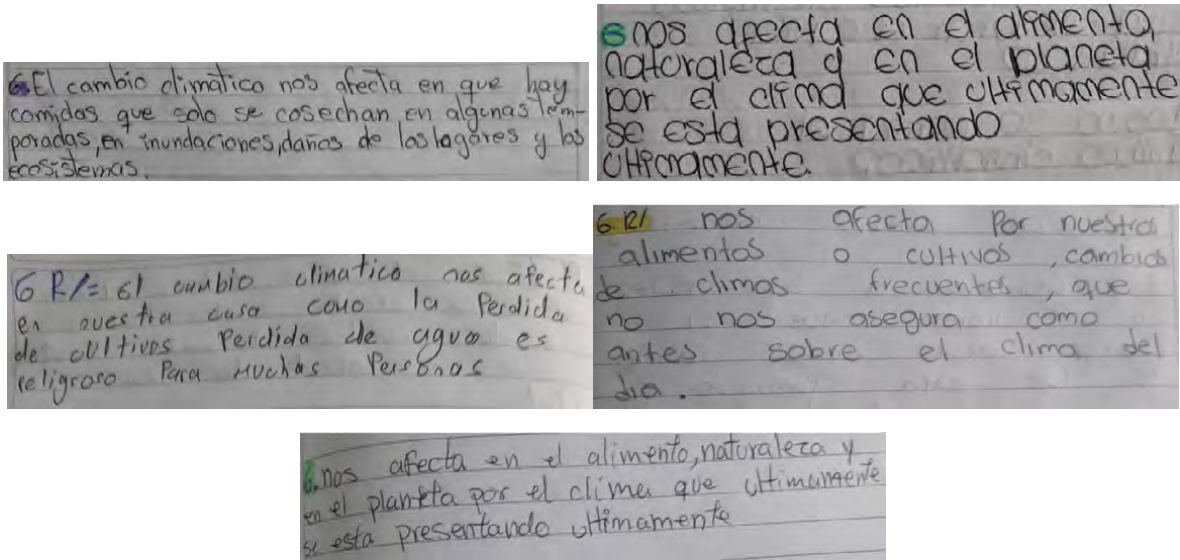 6. El cambio climático nos afecta en que hay
comidas que solo se cosechan en algunas tem-
poradas, en inundaciones, daños de los lagares y los
ecosistemas.
6 nos afecta en el alimento,
naturaleza y en el planeta
por el clima que ultimamente
se esta presentando
ultimamente.
6 R/= El cambio climatico nos afecta
en nuestra casa como la Perdida
de cultivos Perdida de agua es
peligroso Para muchas Personas
6. R/ nos afecta Por nuestros
alimentos o cultivos, cambios
de climas frecuentes, que
no nos asegura como
antes sobre el clima del
dia.
6. nos afecta en el alimento, naturaleza y
en el planeta por el clima que ultimamente
se esta presentando ultimamente